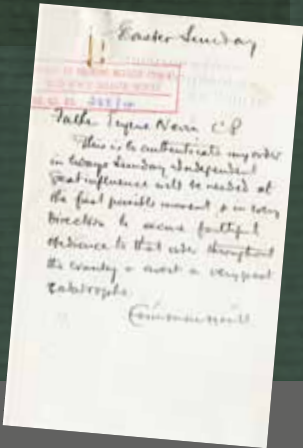 Easter Sunday
Father Eugene Nevin CP
This is to authenticate my order
in to-days Sunday Independent
Great influence will be needed at
the first possible moment & in every
direction to secure faithful
obedience to that order throughout
the country & avert a very great
catastrophe.
Eoin MacNeill